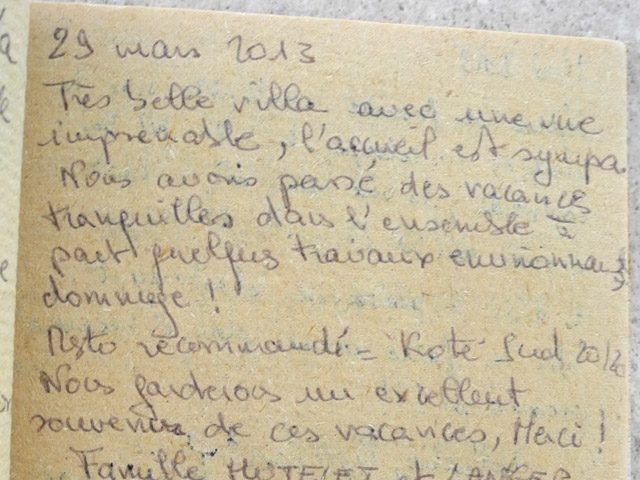 29 mars 2013
Très belle villa avec une vue
imprenable, l'accueil est sympa.
Nous avons passé des vacances
tranquilles dans l'ensemble à
part quelques travaux environnants
dommage !
Resto recommandé = Koté Sud 20/20
Nous garderons un excellent
souvenir de ces vacances, Merci !
Famille et